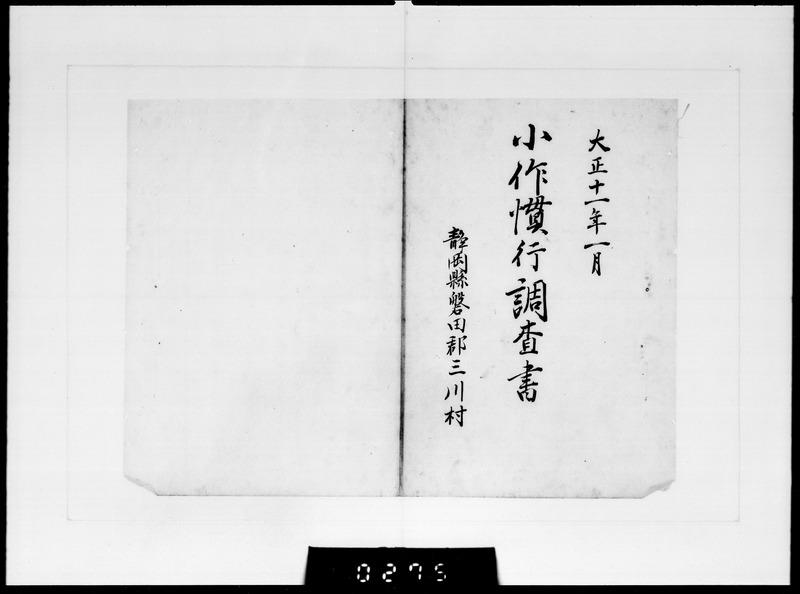 大正十一年一月
小作慣行調査書
静岡縣磐田郡三川村
0275